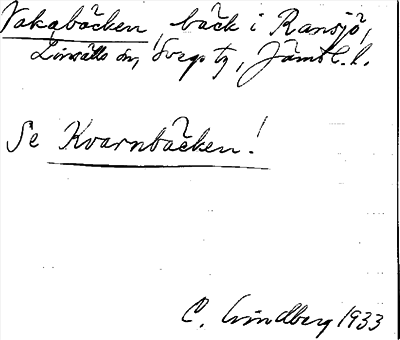 Vakabäcken, bäck i Ransjö,
Linsälls sn, Svegs tg, Jämtl. l.
Se Kvarnbäcken!
C. Lindberg 1933